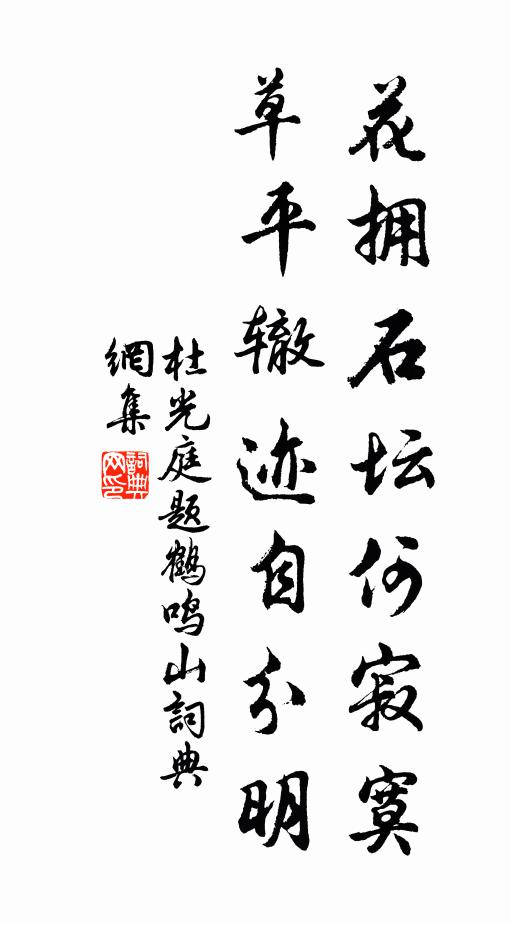 花拥石坛何寂寞
草平辙迹自分明
杜光庭题鹤鸣山詞典
網集
詞典网印